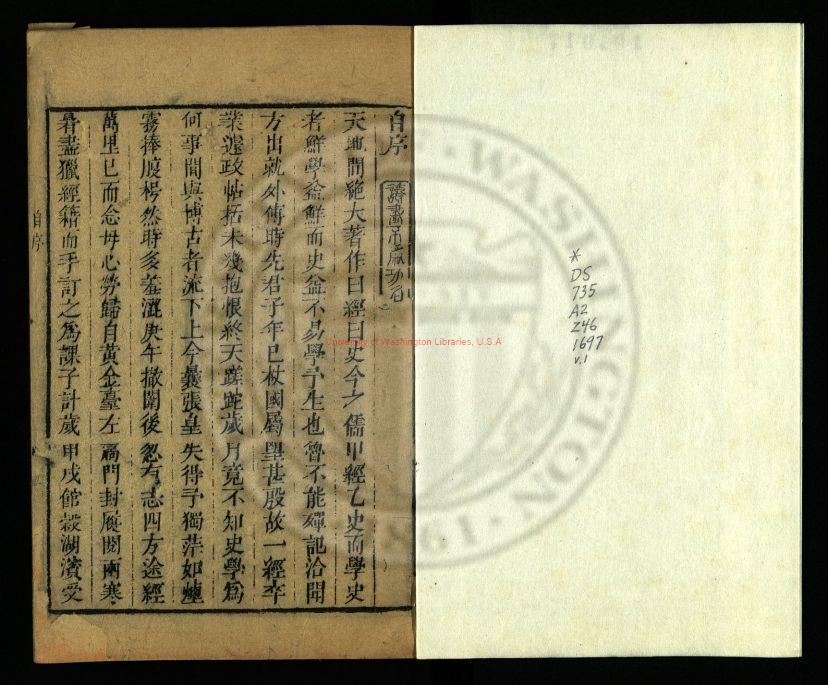 自序
天地間絕大著作曰經曰史今之儒甲經乙史而學史
者鮮學益鮮而史益不易學予生也魯不能殫記洽聞
方出就外傅時先君子年已杖國屬望甚殷故一經卒
業遽政帖括未幾抱恨終天蹉跎歲月竟不知史學為
何事間與博古者流下上今曩張皇失得予獨茫如煙
霧捧腹枵然時多羞澀庚午撤闈後忽有志四方途經
萬里已而念母心勞歸自黃金臺左扃門封屐閱兩寒
暑盡獵經籍而手訂之為課子計歲甲戌館穀湖濱受
自序
University of Washington Libraries, U.S.A
WASHINGTON
*
DS
735
A2
Z46
1697
v.1